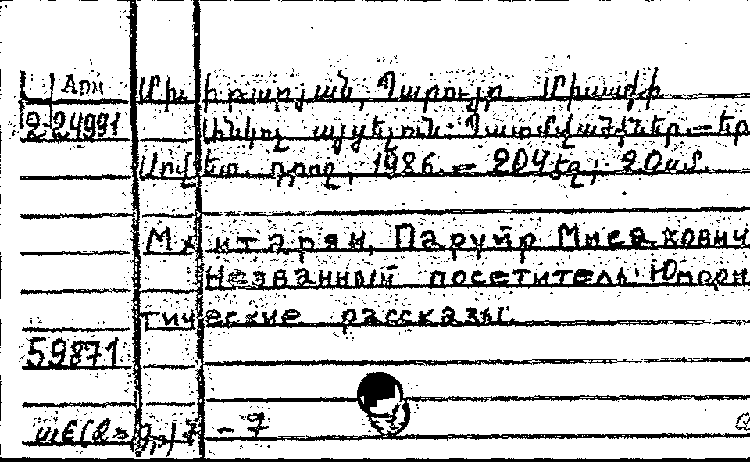 Арм Մխիթարյան, Պարույր Միսակի
2 24991 Անկոչ այցելուն: Պատմվածքներ. — Եր
Սովետ. գրող, 1986. — 204 էջ; 20սմ.
Мхитарян, Паруйр Мисакович
Незванный посетитель: Юморис
тические рассказы.
59871
7 – 7